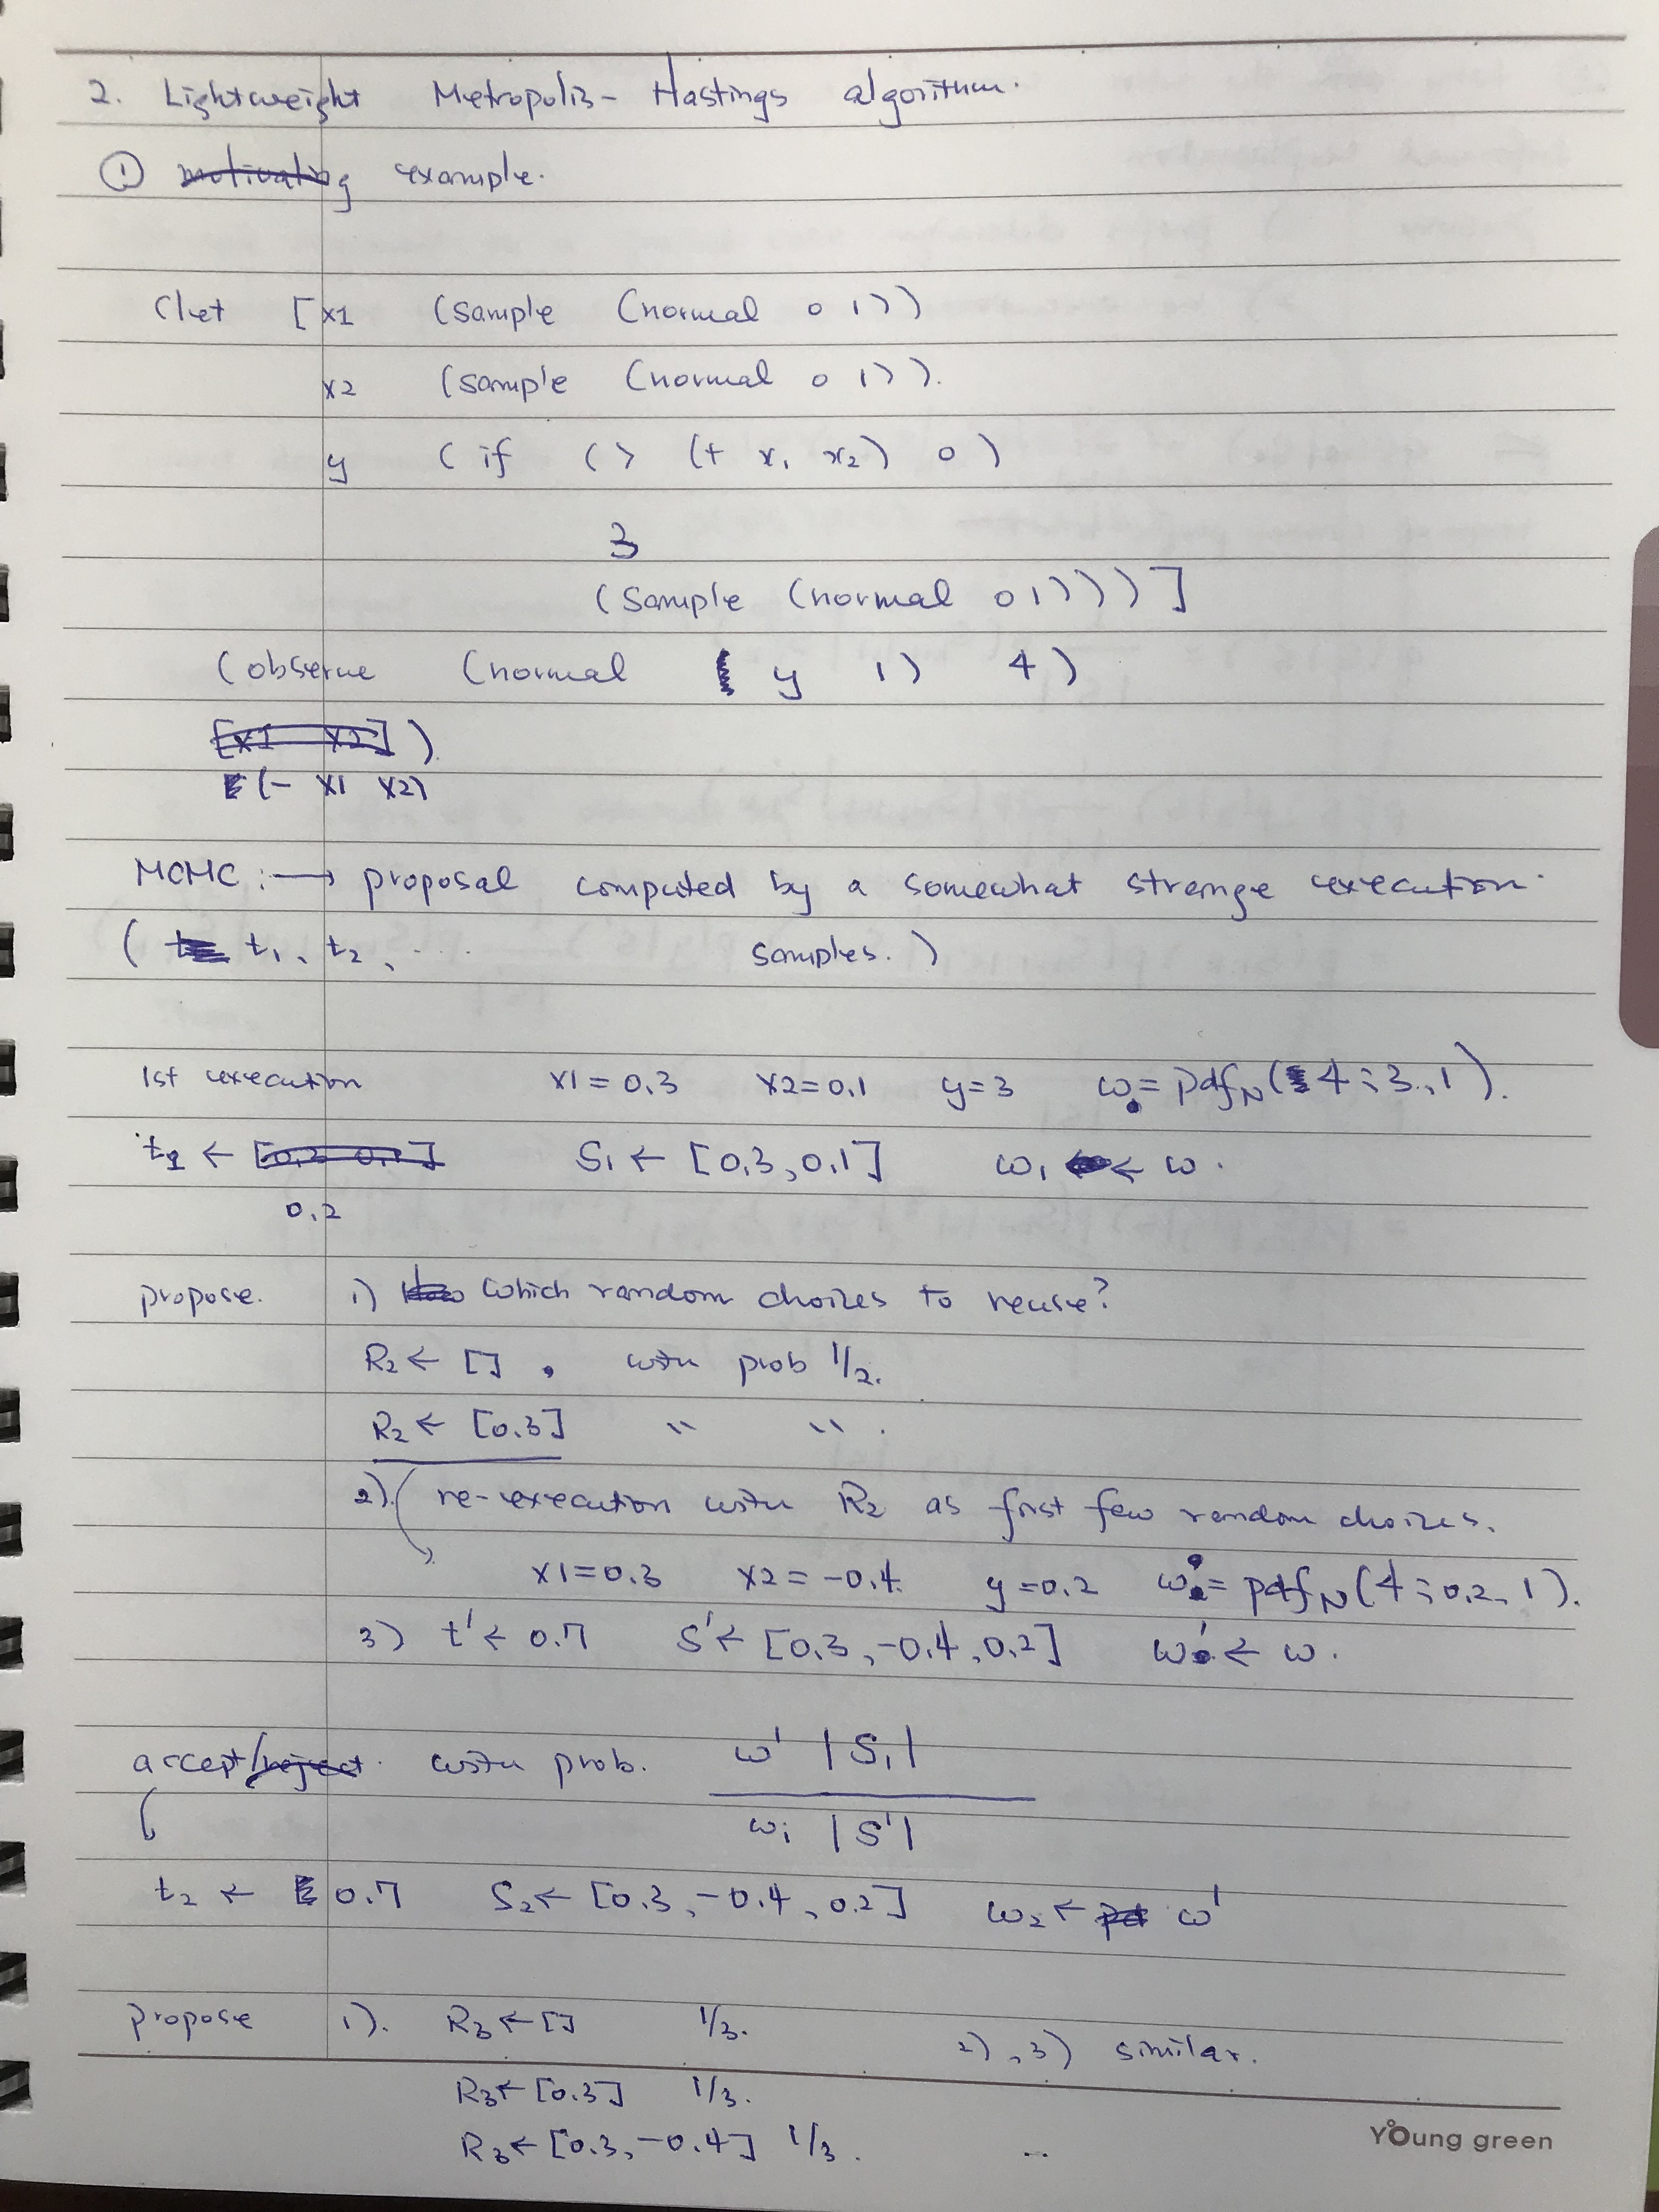 2. Lightweight Metropolis-Hastings algorithm.
① motivating example.
(let [x1 (sample (normal 0 1))
x2 (sample (normal 0 1)).
y (if (> (+ x1 x2) 0)
3
(sample (normal 0 1)))]
(observe (normal y 1) 4)
[x1 x2])
(- x1 x2)
MCMC : → proposal computed by a somewhat strange execution.
(t1, t2, ... samples.)
1st execution x1=0.3 x2=0.1 y=3 ω = pdf_N(4; 3, 1).
t1 ← [0.3 0.1] S1 ← [0.3, 0.1] ω1 ← ω.
0.2
propose. 1) which random choices to reuse?
R2 ← [], with prob 1/2.
R2 ← [0.3] " ".
2) re-execution with R2 as first few random choices.
x1=0.3 x2=-0.4 y=0.2 ω = pdf_N(4; 0.2, 1).
3) t' ← 0.7 S' ← [0.3, -0.4, 0.2] ω' ← ω.
accept/reject. with prob. ω' |S1|
ω1 |S'|
t2 ← 0.7 S2 ← [0.3, -0.4, 0.2] ω2 ← ω'
propose 1). R3 ← [] 1/3. 2), 3) similar.
R3 ← [0.3] 1/3.
R3 ← [0.3, -0.4] 1/3. ..
Young green